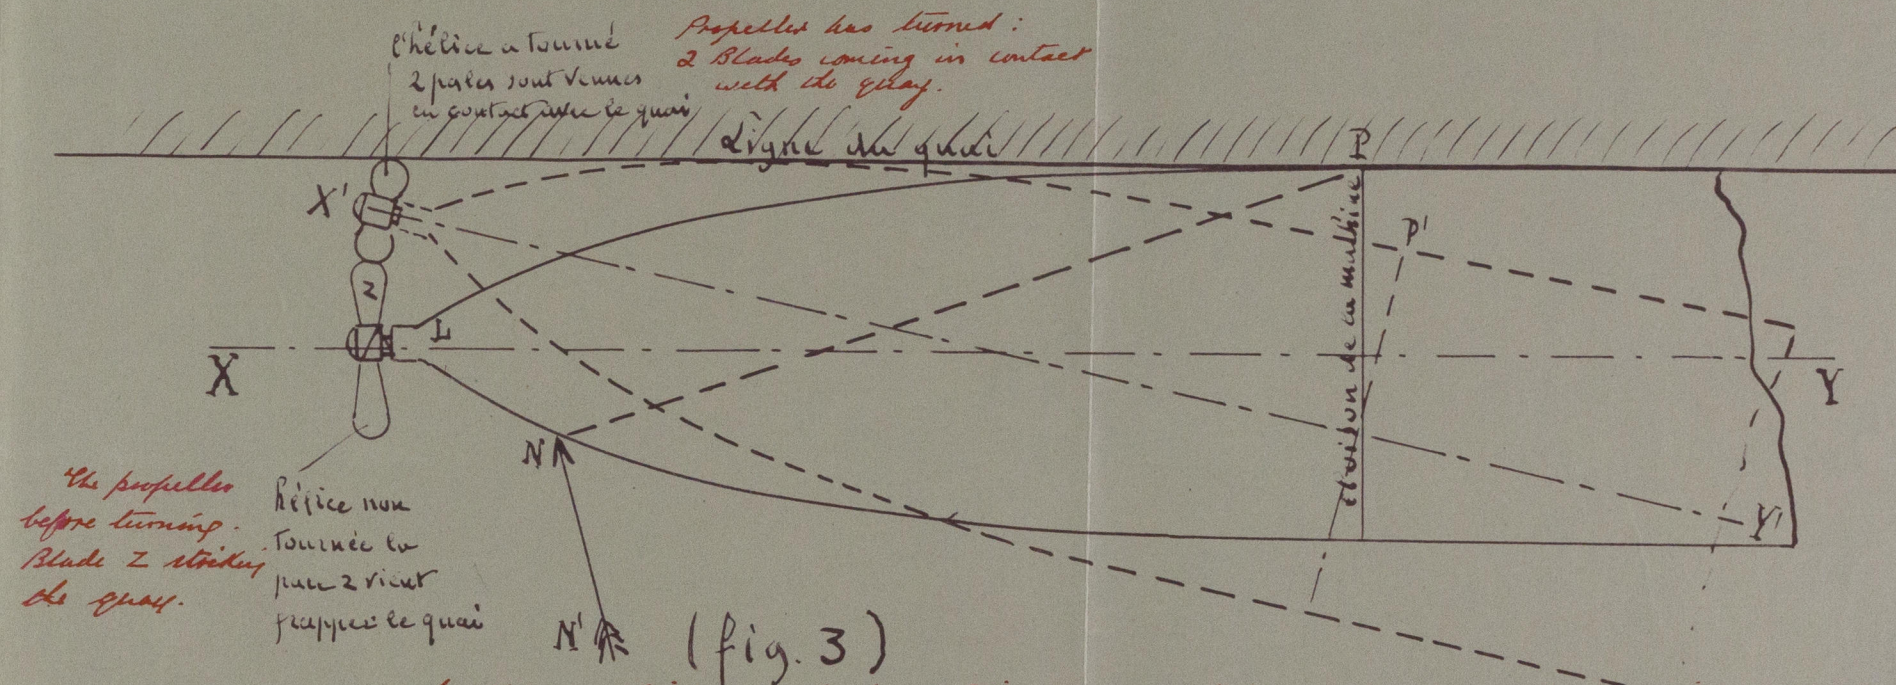 l'hélice a tourné
2 pales sont venues
en contact avec le quai
Propeller has turned:
2 Blades coming in contact
with the quay.
Ligne du quai
P
X'
P'
2
L
X
Y
cloison de la machine
N
Y'
The propeller
before turning.
Blade 2 striking
the quay.
hélice non
tournée la
pale 2 vient
frapper le quai
N'
(fig. 3)